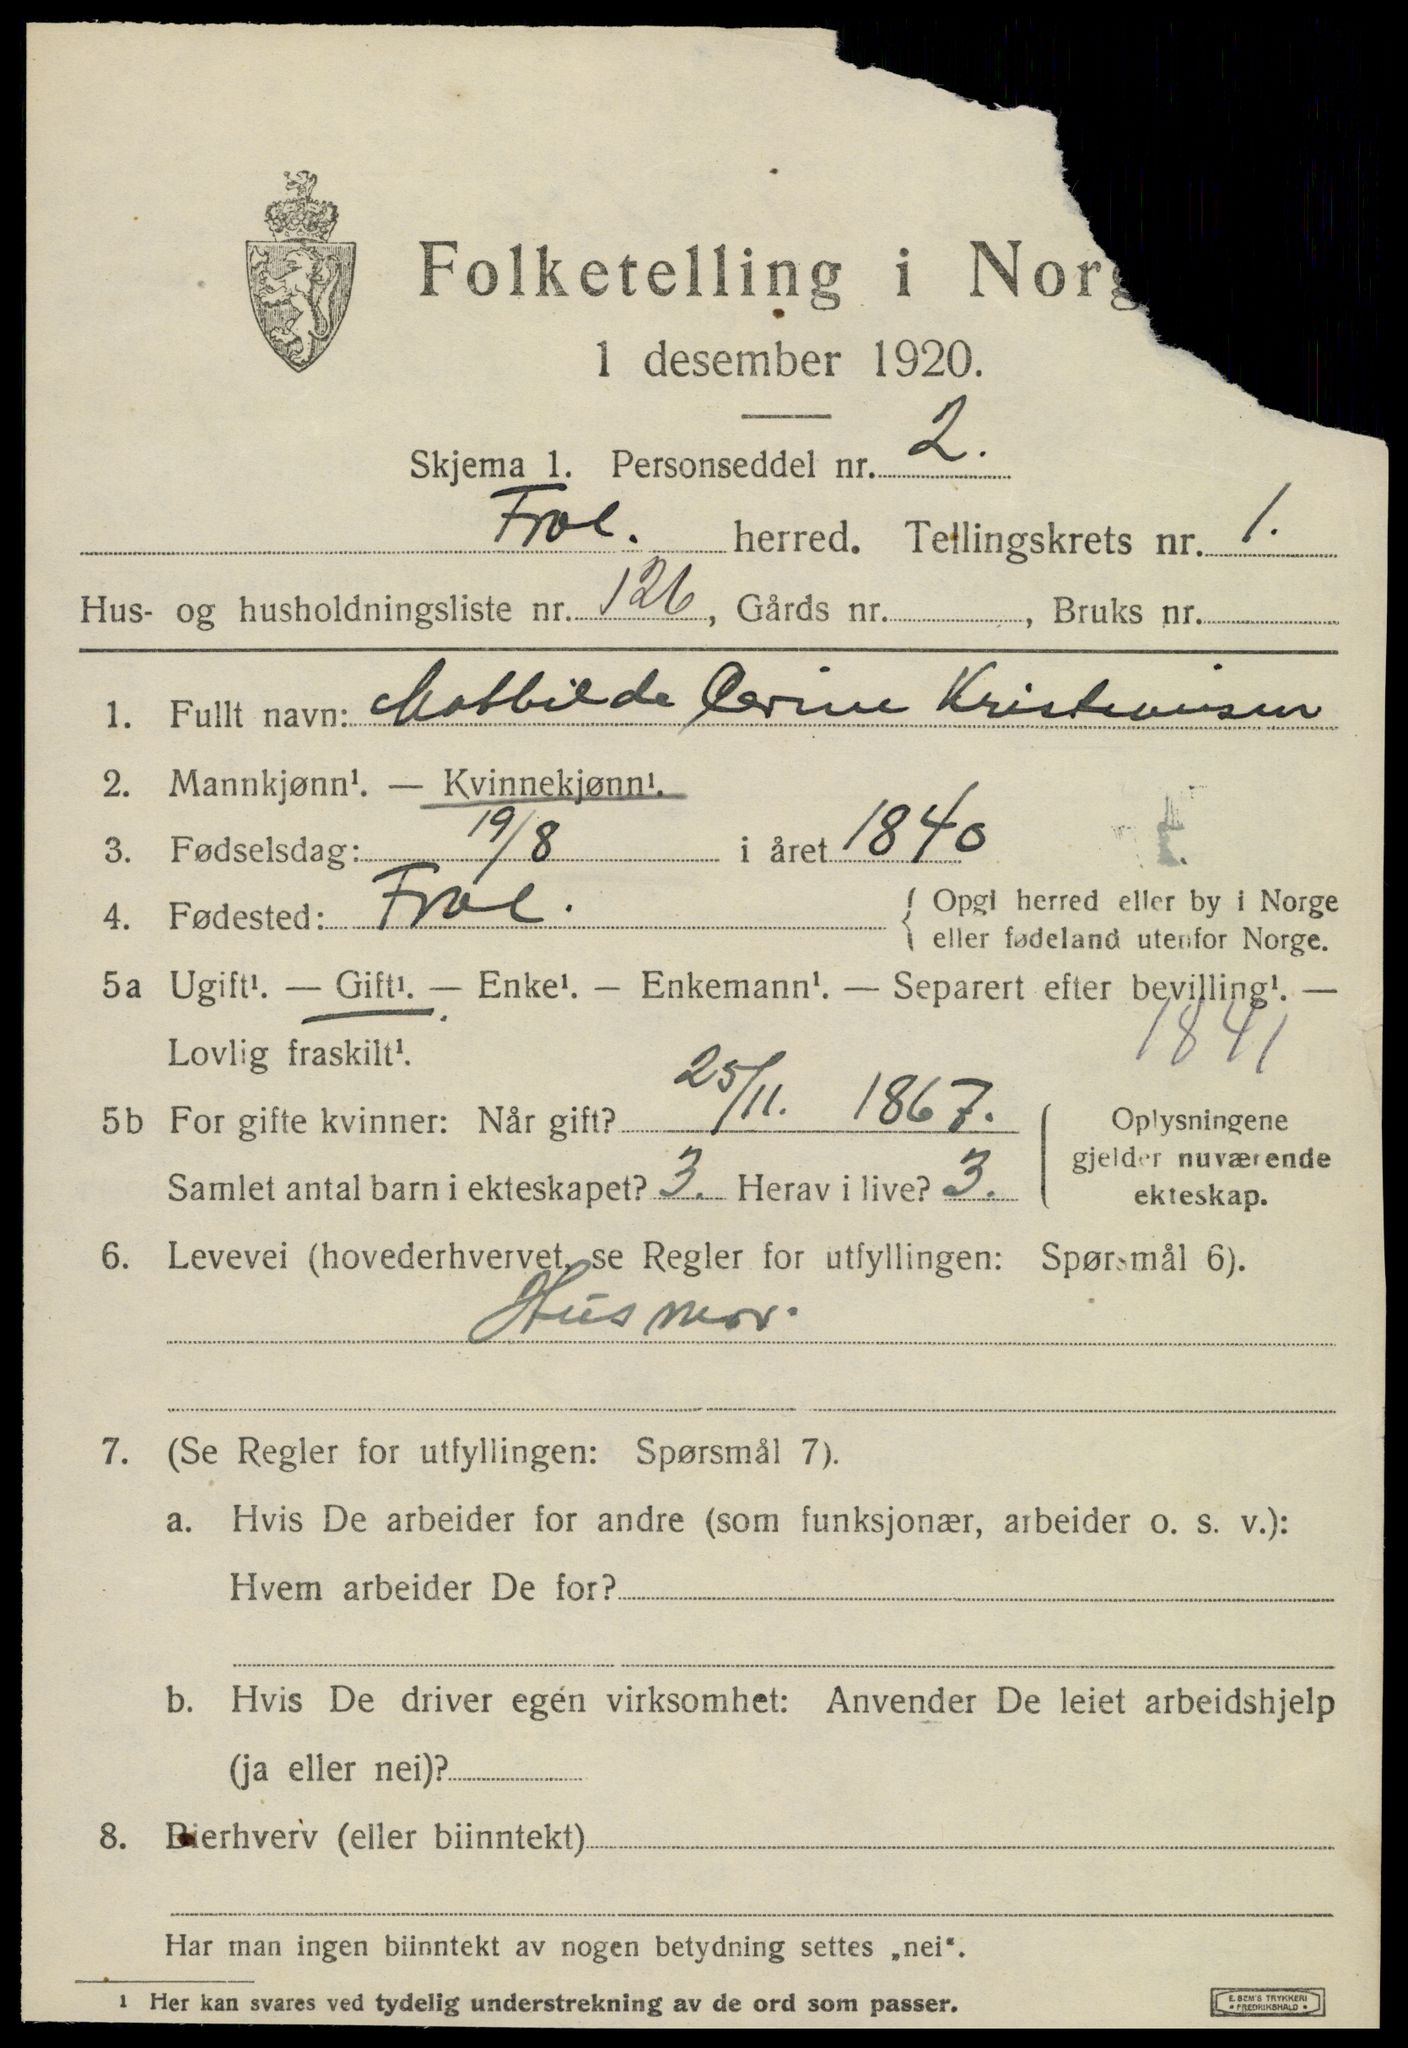 Folketelling i Norg
1 desember 1920.
Skjema 1. Personseddel nr. 2.
Frol. herred. Tellingskrets nr. 1.
Hus- og husholdningsliste nr. 126, Gårds nr. , Bruks nr.
1. Fullt navn: Mathilde Kristiansen
2. Mannkjønn¹. — Kvinnekjønn¹.
3. Fødselsdag: 19/8 i året 1840
4. Fødested: Frol. { Opgi herred eller by i Norge
eller fødeland utenfor Norge.
5a Ugift¹. — Gift¹. — Enke¹. — Enkemann¹. — Separert efter bevilling¹. —
1841
Lovlig fraskilt¹.
5b For gifte kvinner: Når gift? 25/11. 1867. { Oplysningene
gjelder nuværende
Samlet antal barn i ekteskapet? 3. Herav i live? 3. ekteskap.
6. Levevei (hovederhvervet, se Regler for utfyllingen: Spørsmål 6).
Husmor.
7. (Se Regler for utfyllingen: Spørsmål 7).
a. Hvis De arbeider for andre (som funksjonær, arbeider o. s. v.):
Hvem arbeider De for?
b. Hvis De driver egen virksomhet: Anvender De leiet arbeidshjelp
(ja eller nei)?
8. Bierhverv (eller biinntekt)
Har man ingen biinntekt av nogen betydning settes „nei“.
1 Her kan svares ved tydelig understrekning av de ord som passer.
E. SEM'S TRYKKERI
• FREDRIKSHALD •